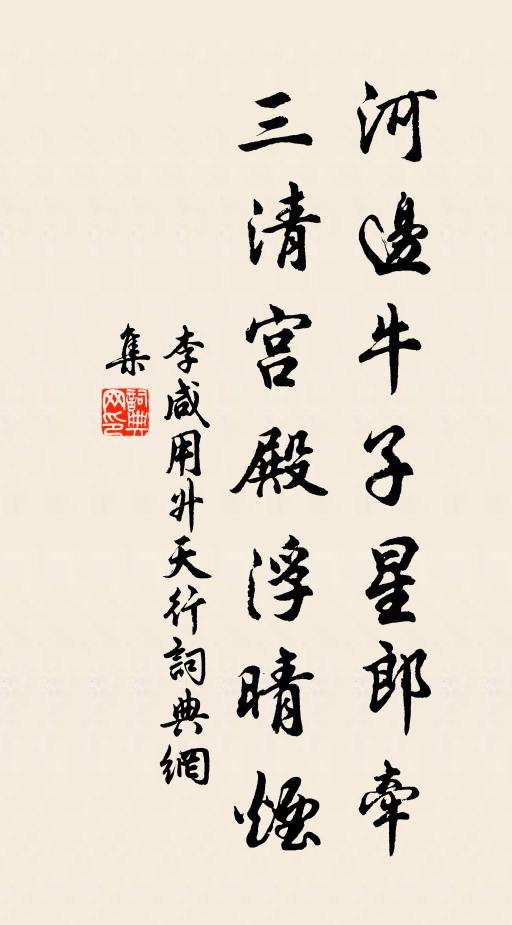 河邊牛子星郎牽
三清宮殿浮晴煙
李咸用升天行詞典網
集
詞典
网印